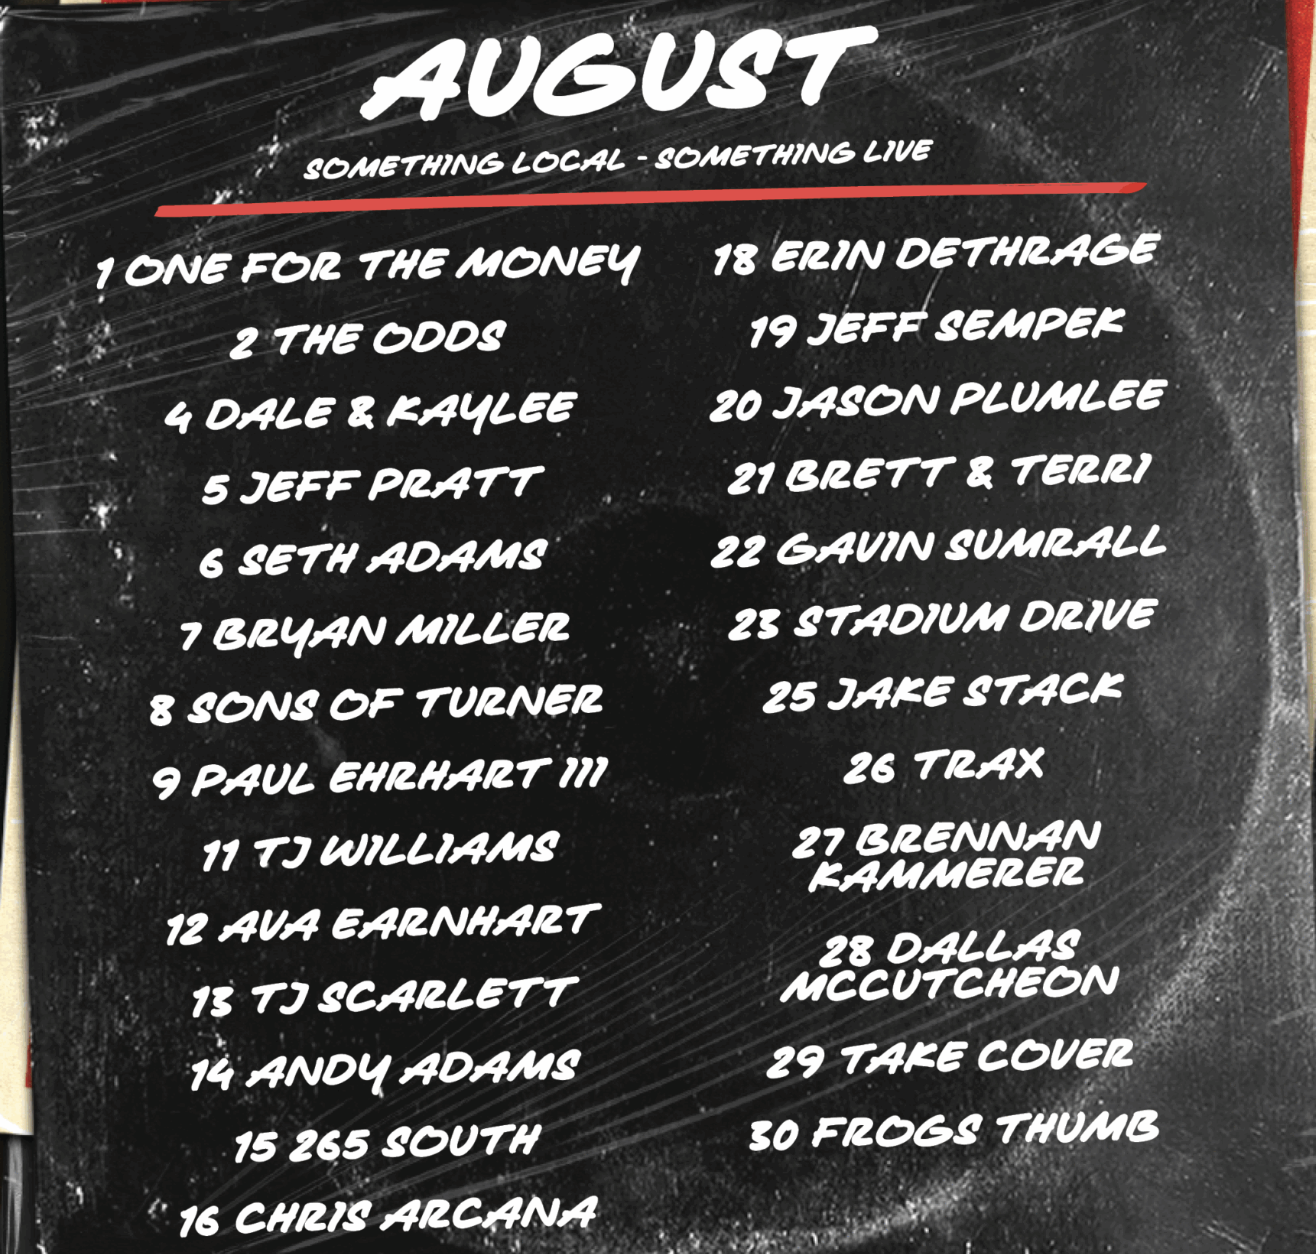 AUGUST
SOMETHING LOCAL - SOMETHING LIVE
1 ONE FOR THE MONEY
2 THE ODDS
4 DALE & KAYLEE
5 JEFF PRATT
6 SETH ADAMS
7 BRYAN MILLER
8 SONS OF TURNER
9 PAUL EHRHART III
11 TJ WILLIAMS
12 AVA EARNHART
13 TJ SCARLETT
14 ANDY ADAMS
15 265 SOUTH
16 CHRIS ARCANA
18 ERIN DETHRAGE
19 JEFF SEMPEK
20 JASON PLUMLEE
21 BRETT & TERRI
22 GAVIN SUMRALL
23 STADIUM DRIVE
25 JAKE STACK
26 TRAX
27 BRENNAN
KAMMERER
28 DALLAS
MCCUTCHEON
29 TAKE COVER
30 FROGS THUMB